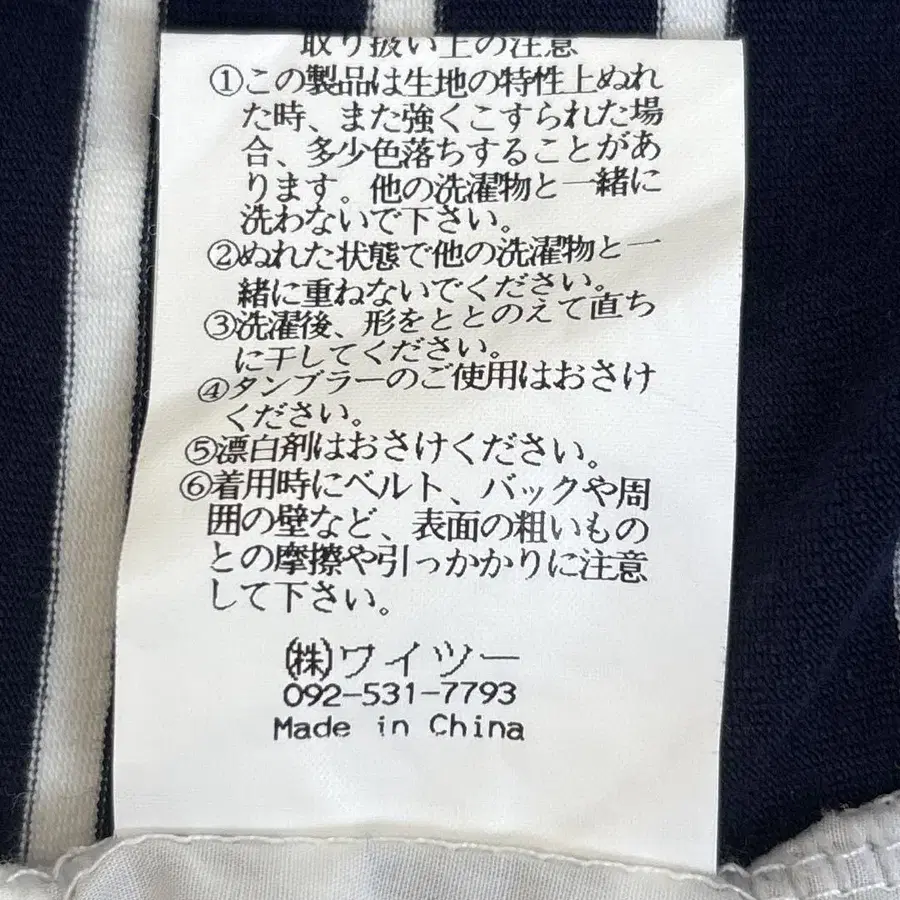 取り扱い上の注意
①この製品は生地の特性上ぬれ
た時、また強くこすられた場
合、多少色落ちすることがあ
ります。他の洗濯物と一緒に
洗わないで下さい。
②ぬれた状態で他の洗濯物と一
緒に重ねないでください。
③洗濯後、形をととのえて直ち
に干してください。
④タンブラーのご使用はおさけ
ください。
⑤漂白剤はおさけください。
⑥着用時にベルト、バックや周
囲の壁など、表面の粗いもの
との摩擦や引っかかりに注意
して下さい。
㈱ワイツー
092-531-7793
Made in China